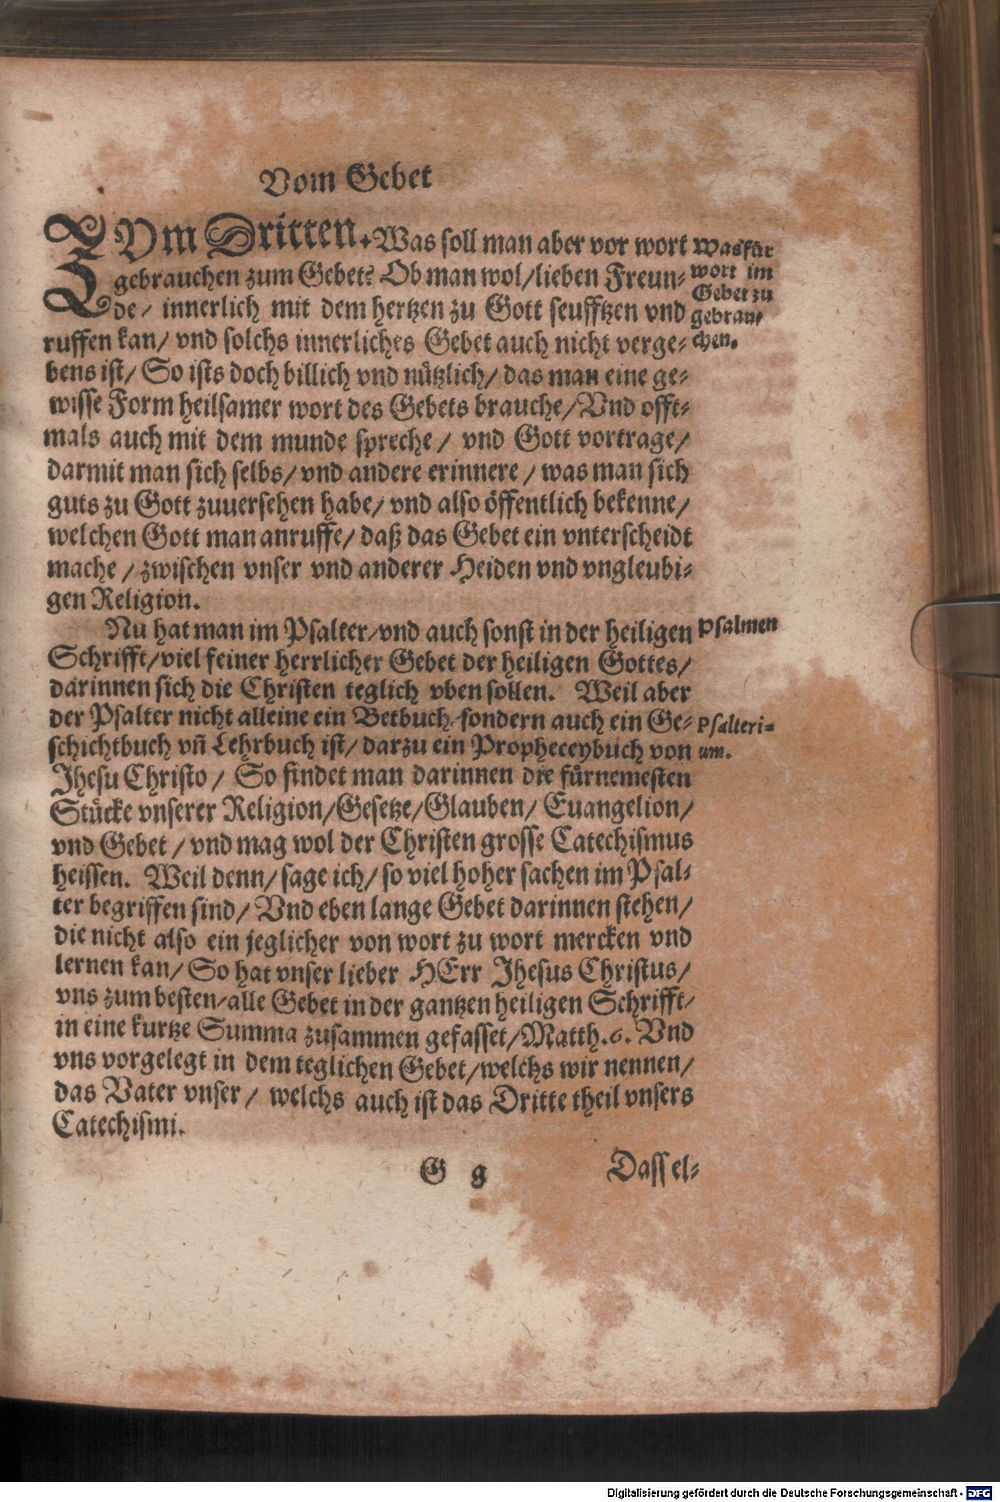 Vom Gebet
ZVm Dritten. Was soll man aber vor wort
gebrauchen zum Gebet? Ob man wol/lieben Freun-
de/ innerlich mit dem hertzen zu Gott seufftzen vnd
ruffen kan/ vnd solchs innerliches Gebet auch nicht verge-
bens ist/ So ists doch billich vnd nützlich/ das man eine ge-
wisse Form heilsamer wort des Gebets brauche/Vnd offt-
mals auch mit dem munde spreche/ vnd Gott vortrage/
darmit man sich selbs/ vnd andere erinnere/ was man sich
guts zu Gott zuuersehen habe/ vnd also öffentlich bekenne/
welchen Gott man anruffe/ daß das Gebet ein vnterscheidt
mache/ zwischen vnser vnd anderer Heiden vnd vngleubi-
gen Religion.
Was für
wort im
Gebet zu
gebrau-
chen.
Nu hat man im Psalter/vnd auch sonst in der heiligen
Schrifft/viel feiner herrlicher Gebet der heiligen Gottes/
darinnen sich die Christen teglich vben sollen. Weil aber
der Psalter nicht alleine ein Betbuch/sondern auch ein Ge-
schichtbuch vñ Lehrbuch ist/ darzu ein Propheceybuch von
Jhesu Christo/ So findet man darinnen die fürnemesten
Stücke vnserer Religion/Gesetze/Glauben/ Euangelion/
vnd Gebet/ vnd mag wol der Christen grosse Catechismus
heissen. Weil denn/ sage ich/ so viel hoher sachen im Psal-
ter begriffen sind/ Vnd eben lange Gebet darinnen stehen/
die nicht also ein jeglicher von wort zu wort mercken vnd
lernen kan/ So hat vnser lieber HErr Jhesus Christus/
vns zum besten/alle Gebet in der gantzen heiligen Schrifft/
in eine kurtze Summa zusammen gefasset/Matth.6. Vnd
vns vorgelegt in dem teglichen Gebet/welchs wir nennen/
das Vater vnser/ welchs auch ist das Dritte theil vnsers
Catechismi.
Psalmen
Psalteri-
um.
G g
Dassel-
Digitalisierung gefördert durch die Deutsche Forschungsgemeinschaft - DFG